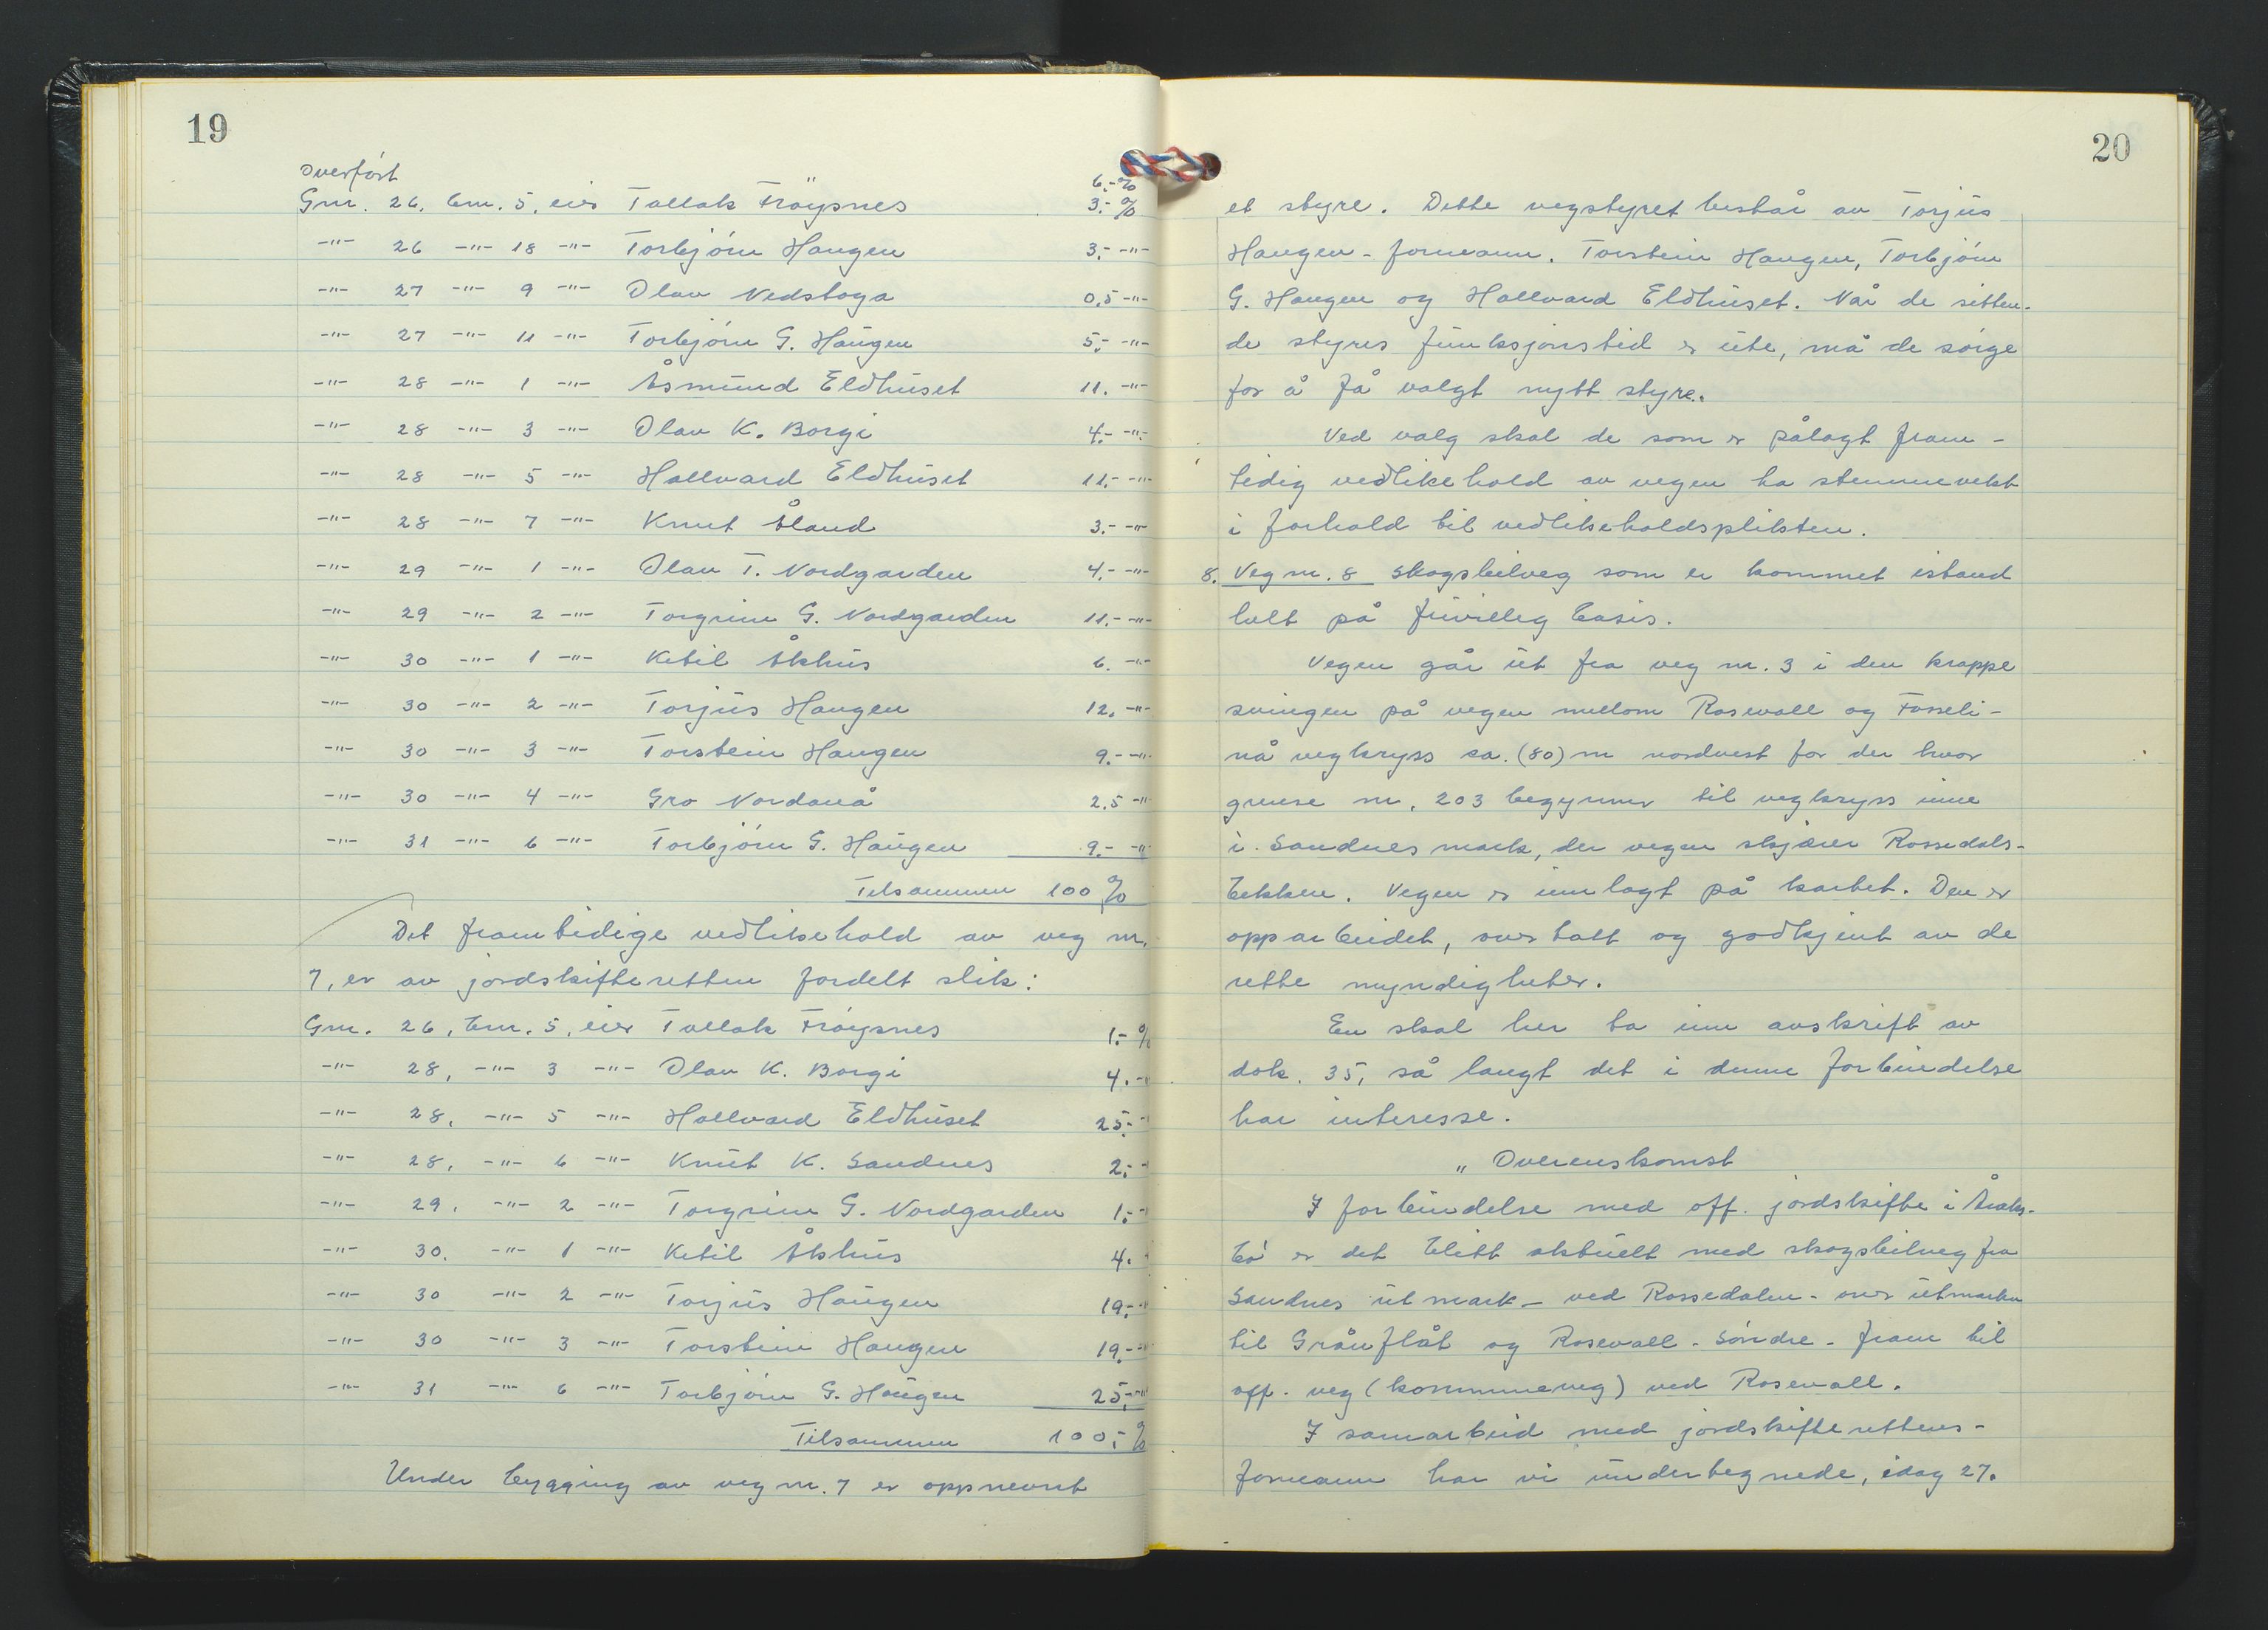 19
Overført 6.-%
Gnr. 26, bnr. 5, eier Tallak Frøysnes 3.-%
-"- 26 -"- 18 -"- Torbjørn Haugen 3.- -"-
-"- 27 -"- 9 -"- Olav Nedstoga 0,5 -"-
-"- 27 -"- 11 -"- Torbjørn G. Haugen 5.- -"-
-"- 28 -"- 1 -"- Åsmund Eldhuset 11. -"-
-"- 28 -"- 3 -"- Olav K. Borgi 4.- -"-
-"- 28 -"- 5 -"- Hallvard Eldhuset 11.- -"-
-"- 28 -"- 7 -"- Knut Åland 3.- -"-
-"- 29 -"- 1 -"- Olav T. Nordgarden 4.- -"-
-"- 29 -"- 2 -"- Torgrim G. Nordgarden 11.- -"-
-"- 30 -"- 1 -"- Ketil Åkhus 6. -"-
-"- 30 -"- 2 -"- Torjus Haugen 12. -"-
-"- 30 -"- 3 -"- Torstein Haugen 9.- -"-
-"- 30 -"- 4 -"- Gro Nordaná 2,5 -"-
-"- 31 -"- 6 -"- Torbjørn G. Haugen 9.- -"-
Tilsammen 100 %
Det framtidige vedlikehold av veg nr.
7, er av jordskifteretten fordelt slik:
Gnr. 26, bnr. 5, eier Tallak Frøysnes 1.- %
-"- 28, -"- 3 -"- Olav K. Borgi 4. -"-
-"- 28, -"- 5 -"- Hallvard Eldhuset 25.- -"-
-"- 28, -"- 6 -"- Knut K. Sandnes 2.- -"-
-"- 29, -"- 2 -"- Torgrim G. Nordgarden 1.- -"-
-"- 30. -"- 1 -"- Ketil Åkhus 4. -"-
-"- 30 -"- 2 -"- Torjus Haugen 19.- -"-
-"- 30 -"- 3 -"- Torstein Haugen 19.- -"-
-"- 31 -"- 6 -"- Torbjørn G. Haugen 25.- -"-
Tilsammen 100.- %
Under bygging av veg nr. 7 er oppnevnt
20
et styre. Dette vegstyret består av Torjus
Haugen - formann. Torstein Haugen, Torbjørn
G. Haugen og Hallvard Eldhuset. Når de sitten-
de styres funksjonstid er ute, må de sørge
for å få valgt nytt styre.
Ved valg skal de som er pålagt fram-
tidig vedlikehold av vegen ha stemmevekt
i forhold til vedlikeholdsplikten.
8. Veg nr. 8 skogsbilveg som er kommet istand
helt på frivilleg basis.
Vegen går ut fra veg nr. 3 i den krappe
svingen på vegen mellom Rosevall og Fosseli -
nå vegkryss ca. (80) m nordvest for der hvor
grense nr. 203 begynner til vegkryss inne
i Sandnes mark, der vegen skjærer Rossedals-
bekken. Vegen er innlagt på kartet. Den er
opparbeidet, overtatt og godkjent av de
rette myndigheter.
En skal her ta inn avskrift av
dok. 35, så langt det i denne forbindelse
har interesse.
" Overenskomst
I forbindelse med off. jordskifte i Åraks-
bø er det blitt aktuelt med skogsbilveg fra
Sandnes utmark - ved Rossedalen - over utmarka
til Grånflåt og Rosevall - Søndre - fram til
off. veg (kommuneveg) ved Rosevall.
I samarbeid med jordskifterettens-
formann har vi undertegnede, idag 27.